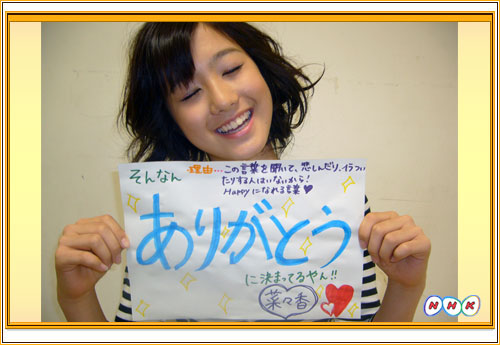 そんなん
理由…この言葉を聞いて、悲しんだり、イラつい
たりする人はいないから!
Happyになれる言葉♥
ありがとう
に決まってるやん!!
菜々香
NHK